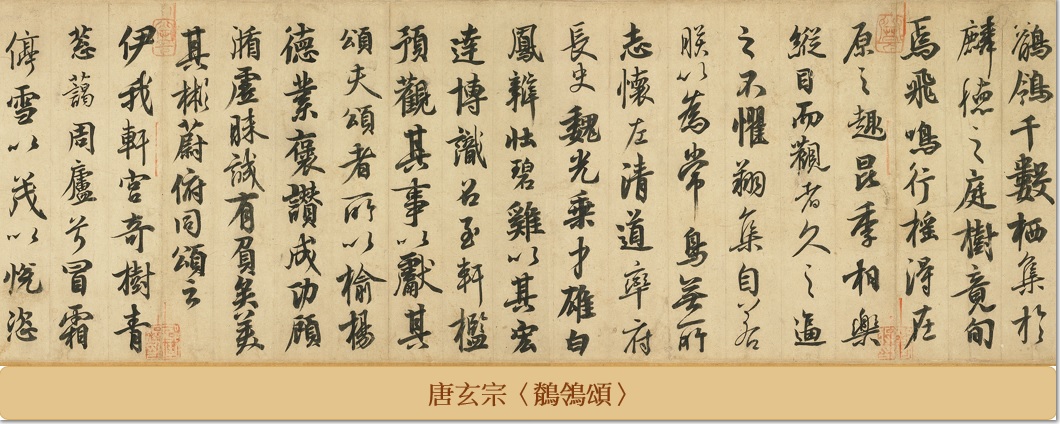 鶺鴒千數栖集於
麟德之庭樹竟旬
焉飛鳴行搖得在
原之趣昆季相樂
縱目而觀者久之逼
之不懼翔集自若
朕以為常鳥無所
志懷左清道率府
長史魏光乘才雄白
鳳辯壯碧雞以其宏
達博識召至軒檻
預觀其事以獻其
頌夫頌者所以揄揚
德業褒讚成功顧
循虛昧誠有負矣美
其彬蔚俯同頌云
伊我軒宮奇樹青
蔥藹周廬兮冒霜
停雪以茂以悅恣
唐玄宗〈鶺鴒頌〉